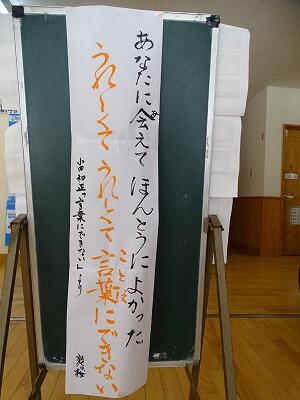 あなたに会えて ほんとうに よかった
うれしくて うれしくて 言葉にできない。
ことば
小田和正「言葉にできない」より